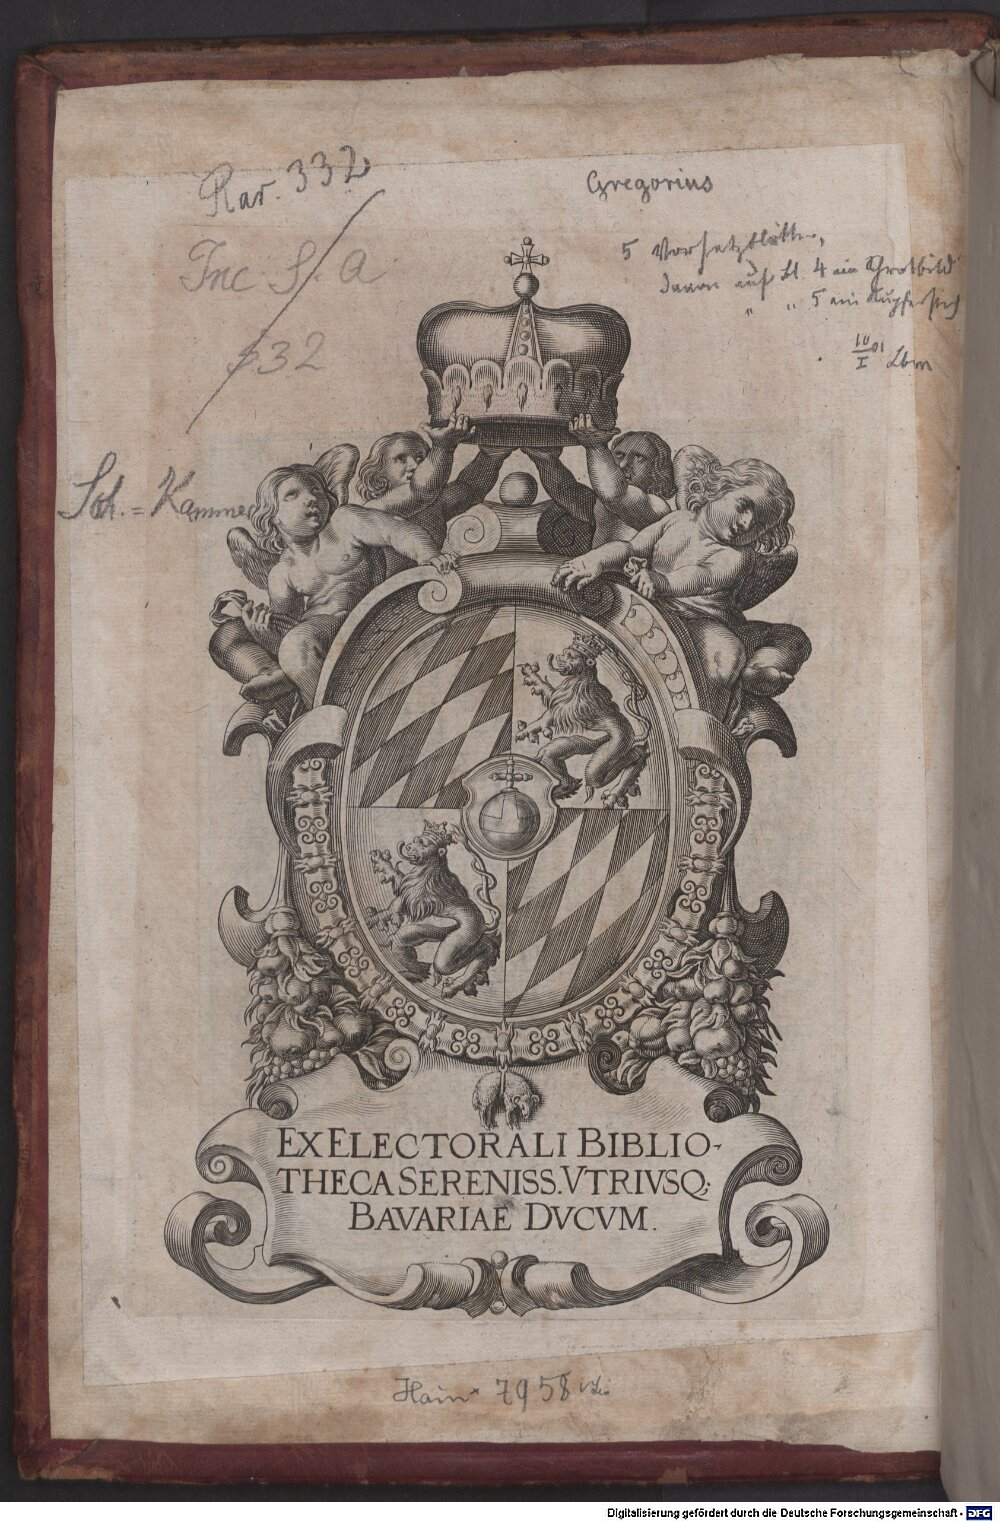 Rar. 332
Gregorius
5 Vorsetzblätter,
davon auf Bl. 4 ein Schrotbild
" " 5 ein Kupferstich
Inc S. a
332
10/I 01
Sch.=Kammer
EX ELECTORALI BIBLIO-
THECA SERENISS. VTRIVSQ;
BAVARIAE DVCVM.
Hain* 7958
Digitalisierung gefördert durch die Deutsche Forschungsgemeinschaft - DFG